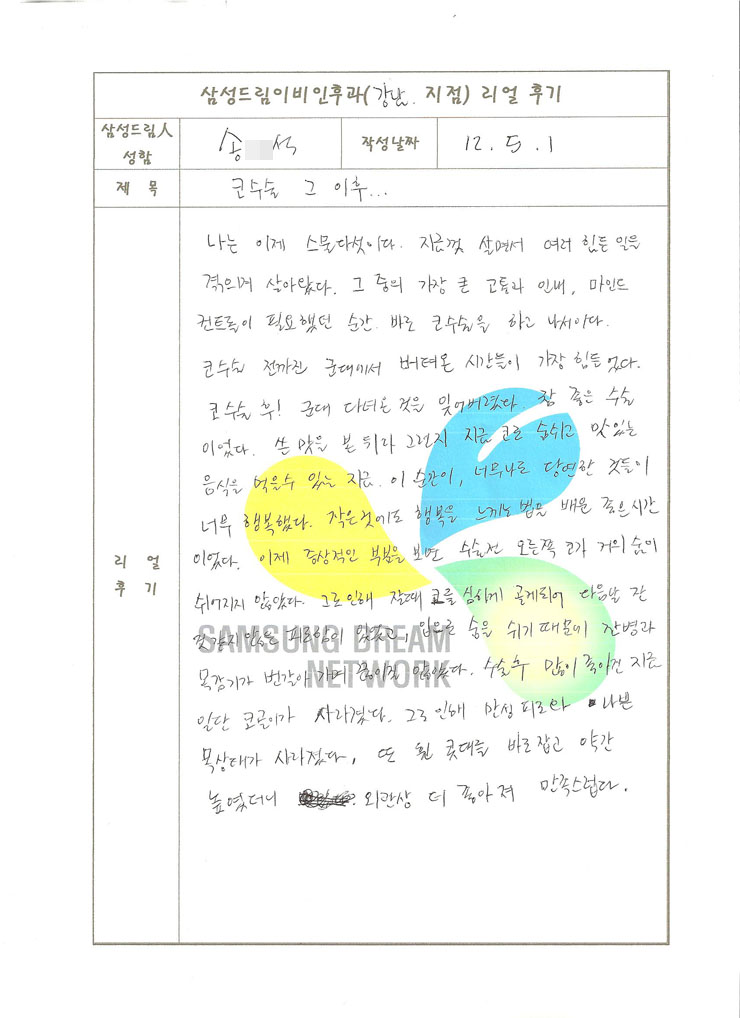 삼성드림이비인후과(강남 지점) 리얼 후기
삼성드림人 성함
송 석
작성날짜
12. 5. 1
제 목
코수술 그 이후...
리 얼 후 기
나는 이제 스물다섯이다. 지금껏 살면서 여러 힘든 일을
겪으며 살아왔다. 그 중의 가장 큰 고통과 인내, 마인드
컨트롤이 필요했던 순간. 바로 코수술을 하고 나서이다.
코수술 전까진 군대에서 버텨온 시간들이 가장 힘들었다.
코수술 후! 군대 다녀온 것을 잊어버렸다. 참 좋은 수술
이었다. 쓴 맛을 본 뒤라 그런지 지금 코로 숨쉬고 맛있는
음식을 먹을수 있는 지금. 이 순간이, 너무나도 당연한 것들이
너무 행복했다. 작은것에도 행복을 느끼는 법을 배운 좋은시간
이었다. 이제 증상적인 부분을 보면 수술전 오른쪽 코가 거의 숨이
쉬어지지 않았다. 그로인해 잘때 코를 심하게 골게되어 다음날 잔
것같지않은 피로함이 있었고, 입으로 숨을 쉬기 때문에 잔병과
목감기가 번갈아가며 끊이질 않았다. 수술후 많이 좋아진 지금
일단 코골이가 사라졌다. 그로 인해 만성 피로와 나쁜
목상태가 사라졌다, 또 휜 콧대를 바로잡고 약간
높였더니 외관상 더 좋아져 만족스럽다.
SAMSUNG DREAM
NETWORK